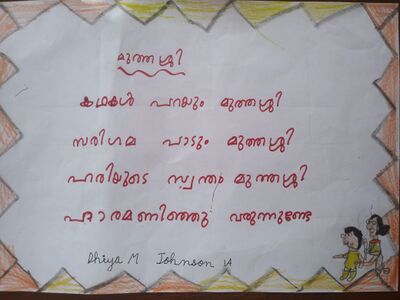 മുത്തശ്ശി
കഥകൾ പറയും മുത്തശ്ശി
സരിഗമ പാടും മുത്തശ്ശി
ഹരിയുടെ സ്വന്തം മുത്തശ്ശി
ഹാരമണിഞ്ഞു വരുന്നുണ്ടേ
Dhiya M Johnson 1A